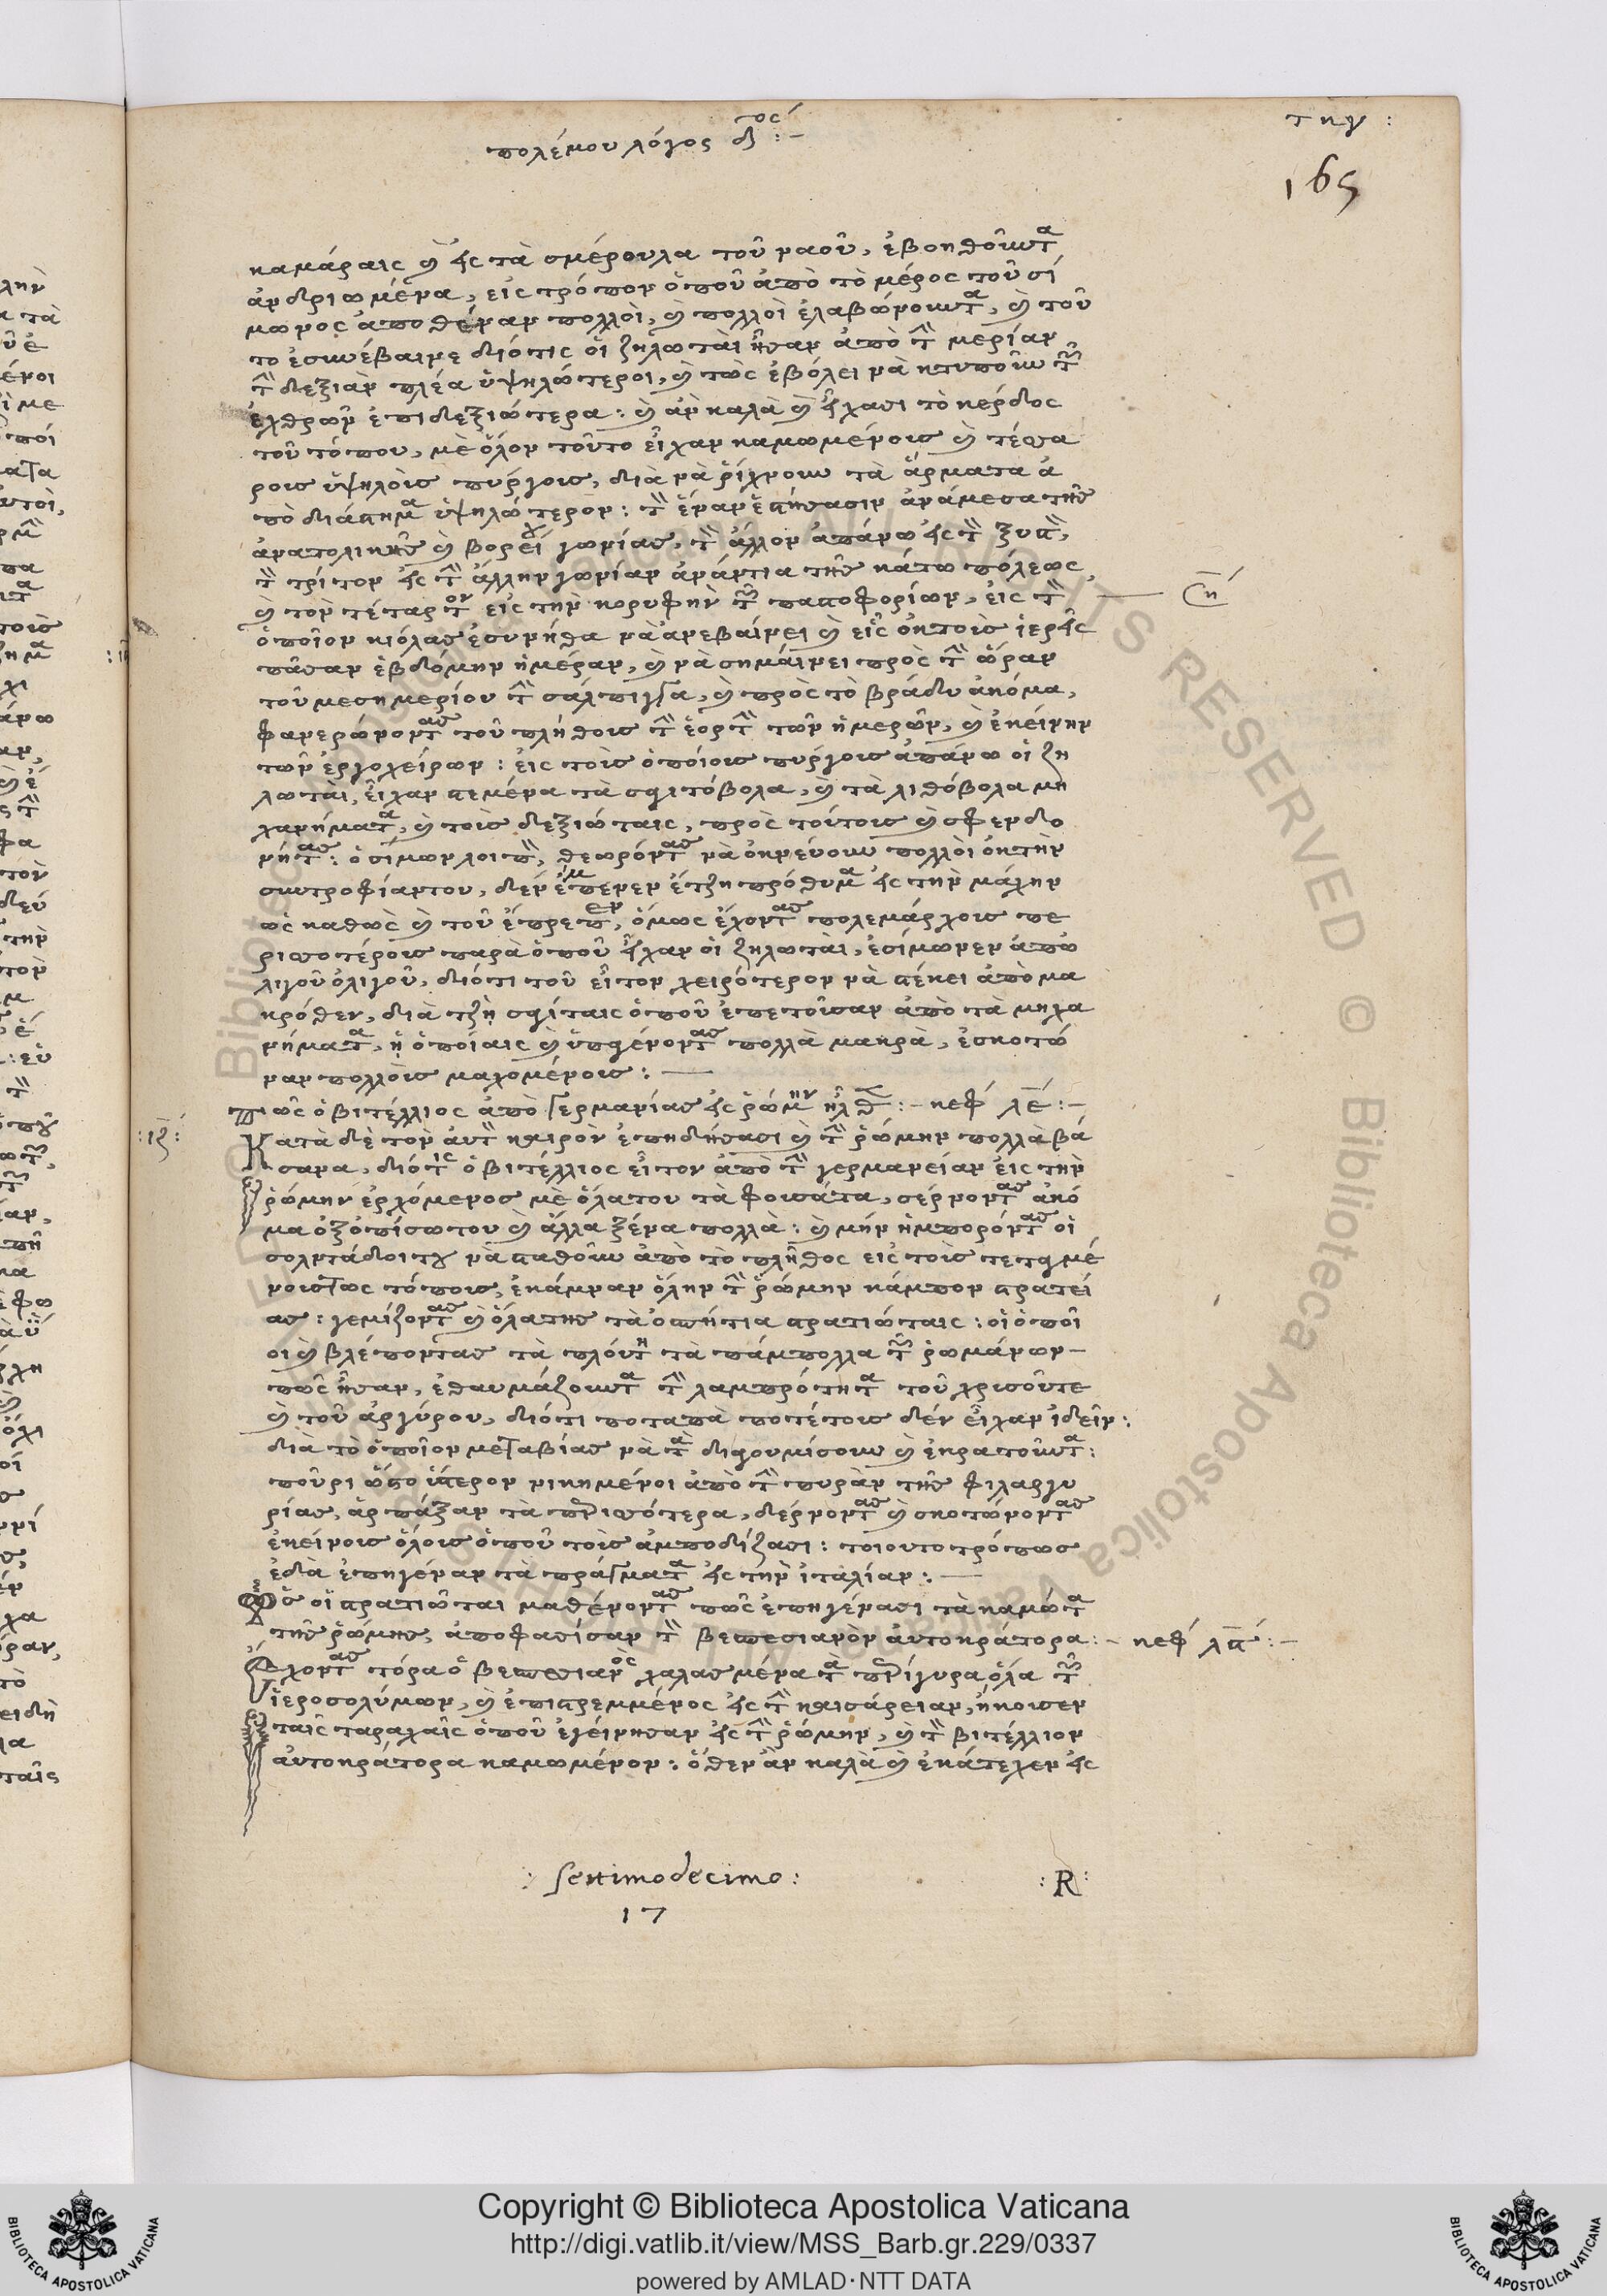 πολέμου λόγος δ τος :-
τκγ :
165
καμάραις καὶ εἰς τὰ σμέρουλα τοῦ ναοῦ, ἐβοηθοῦντα
ἀνδριωμένα, εἰς τρόπον ὁποῦ ἀπὸ τὸ μέρος τοῦ σί
μωνος ἀποθέναν πολλοὶ, καὶ πολλοὶ ἐλαβώνουντα, καὶ τοῦ
το ἐσυνέβαινε διότις οἱ ζηλωταὶ ἦσαν ἀπὸ τὴν μερίαν
τὴν δεξιὰν πλέα ὑψηλώτεροι, καὶ τῶς ἐβόλει νὰ κτυποῦν τῶν
ἐχθρῶν ἐπιδεξιώτερα : καὶ ἂν καλὰ καὶ εἴχασι τὸ κέρδος
τοῦ τόπου, μὲ ὅλον τοῦτο εἶχαν καμωμένους καὶ τέσσα
ρους ὑψηλοὺς πύργους, διὰ νὰ ῥίχνουν τὰ ἄρματα ἀ
πὸ διάστημα ὑψηλώτερον : τὸν ἕναν ἐστήσασιν ἀνάμεσα τῆς
ἀνατολικῆς καὶ βορεί γωνίας, τὸν ἄλλον ἀπάνω εἰς τὸν ξυστὸν,
τὸν τρίτον εἰς τὴν ἄλλην γωνίαν ἀνάντια τῆς κάτω πόλεως,
καὶ τὸν τέταρτον εἰς τὴν κορυφὴν τῶν παστοφορίων, εἰς τὸν
ὁποῖον κιόλας ἐσυνήθα νὰ ἀνεβαίνει καὶ εἷς ὀκ τοὺς ἱερεῖς
πᾶσαν ἑβδόμην ἡμέραν, καὶ νὰ σημαίνει πρὸς τὴν ὥραν
τοῦ μεσημερίου τὴν σάλπιγγα, καὶ πρὸς τὸ βράδυ ἀκόμα,
φανερώνοντας τοῦ πλήθους τὴν ἑορτὴν τῶν ἡμερῶν, καὶ ἐκείνην
τῶν ἐργοχείρων : εἰς τοὺς ὁποίους πύργους ἀπάνω οἱ ζη
λωταὶ, εἶχαν στεμένα τὰ σαϊτόβολα, καὶ τὰ λιθόβολα μη
χανήματα, καὶ τοὺς δεξιώταις, πρὸς τούτους καὶ σφενδο
νήτας : ὁ σίμων λοιπὸν, θεωρόντας νὰ ὀκνεύουν πολλοὶ ὀκ τὴν
συντροφίαν του, δὲν ἔμπενεν ἔτζη πρόθυμα εἰς τὴν μάχην
ὡς καθὼς καὶ τοῦ ἔπρεπεν, ὅμως ἔχοντας πολεμάρχους πε
ρισσοτέρους παρὰ ὁποῦ εἶχαν οἱ ζηλωταὶ, ἐσίμωνεν ἀπὸ
λιγοῦ ὀλιγοῦ, διότι τοῦ εἶτον χειρότερον νὰ στέκει ἀπὸ μα
κρόθεν, διὰ τζὴ σαΐταις ὁποῦ ἐπετοῦσαν ἀπὸ τὰ μηχα
νήματα, ᾑ ὁποίαις καὶ ὑπαένοντας πολλὰ μακρὰ, ἐσκοτώ
ναν πολλοὺς μαχομένους :
πῶς ὁ βιτέλλιος ἀπὸ γερμανίας εἰς ῥώμην ἦλθε :- κεφ λε :-
:ιζ:
Κατὰ δὲ τὸν αὐτὸν καιρὸν ἐπηδήσασι καὶ τὴν ῥώμην πολλὰ βά
σανα, διότις ὁ βιτέλλιος εἶτον ἀπὸ τὴν γερμανείαν εἰς τὴν
ῥώμην ἐρχόμενος μὲ ὅλα του τὰ φουσάτα, σέρνοντας ἀκό
μα ὀξοπίσω του καὶ ἄλλα ξένα πολλὰ : καὶ μὴν ἡμπορόντας οἱ
σολντάδοι του νὰ σταθοῦν ἀπὸ τὸ πλῆθος εἰς τοὺς τεταμέ
νους τως τόπους, ἐκάμναν ὅλην τὴν ῥώμην κάμπον στρατεί
ας : γεμίζοντας καὶ ὅλα της τὰ ὁσπήτια στρατιώταις : οἱ ὁποῖ
οι καὶ βλέποντας τὰ πλούτη τὰ πάμπολλα τῶν ῥωμάνων -
πῶς ἦσαν, ἐθαυμάζουντα τὴν λαμπρότητα τοῦ χρυσοῦ τε
καὶ τοῦ ἀργύρου, διότι ποταπὰ ποτέ τους δὲν εἶχαν ἰδεῖν :
διὰ τὸ ὁποῖον μετὰ βίας νὰ τὰ διαγουμίσουν καὶ ἐκρατοῦντα :
ποῦρι ὥστο ὕστερον νικημένοι ἀπὸ τὴν πυρὰν τῆς φιλαργυ
ρίας, ἁρπάξαν τὰ περισσότερα, δέρνοντας καὶ σκοτώνοντας
ἐκείνους ὅλους ὁποῦ τοὺς ἀμποδίζασι : τοιουτοτρόπως
ἐδὰ ἐπηγέναν τὰ πράγματα εἰς τὴν ἰταλίαν :
Πῶς οἱ στρατιῶται μαθένοντας πῶς ἐπηγένασι τὰ καμώτα
τῆς ῥώμης, ἀποφασίσαν τὸν βεσπεσιανὸν αὐτοκράτορα :- κεφ λστ :-
Ἔχοντας τόρα ὁ βεσπεσιανὸς χαλασμένα τὰ περίγυρα ὅλα τῶν
ἱεροσολύμων, καὶ ἐπιστρεμμένος εἰς τὴν καισάρειαν, ἤκουσεν
ταῖς ταραχαῖς ὁποῦ ἐγείρησαν εἰς τὴν ῥώμην, καὶ τὸν βιτέλλιον
αὐτοκράτορα καμωμένον : ὅθεν ἂν καλὰ καὶ ἐκάτεχεν εἰς
: settimodecimo :
17
: R :
Copyright © Biblioteca Apostolica Vaticana
http://digi.vatlib.it/view/MSS_Barb.gr.229/0337
powered by AMLAD·NTT DATA